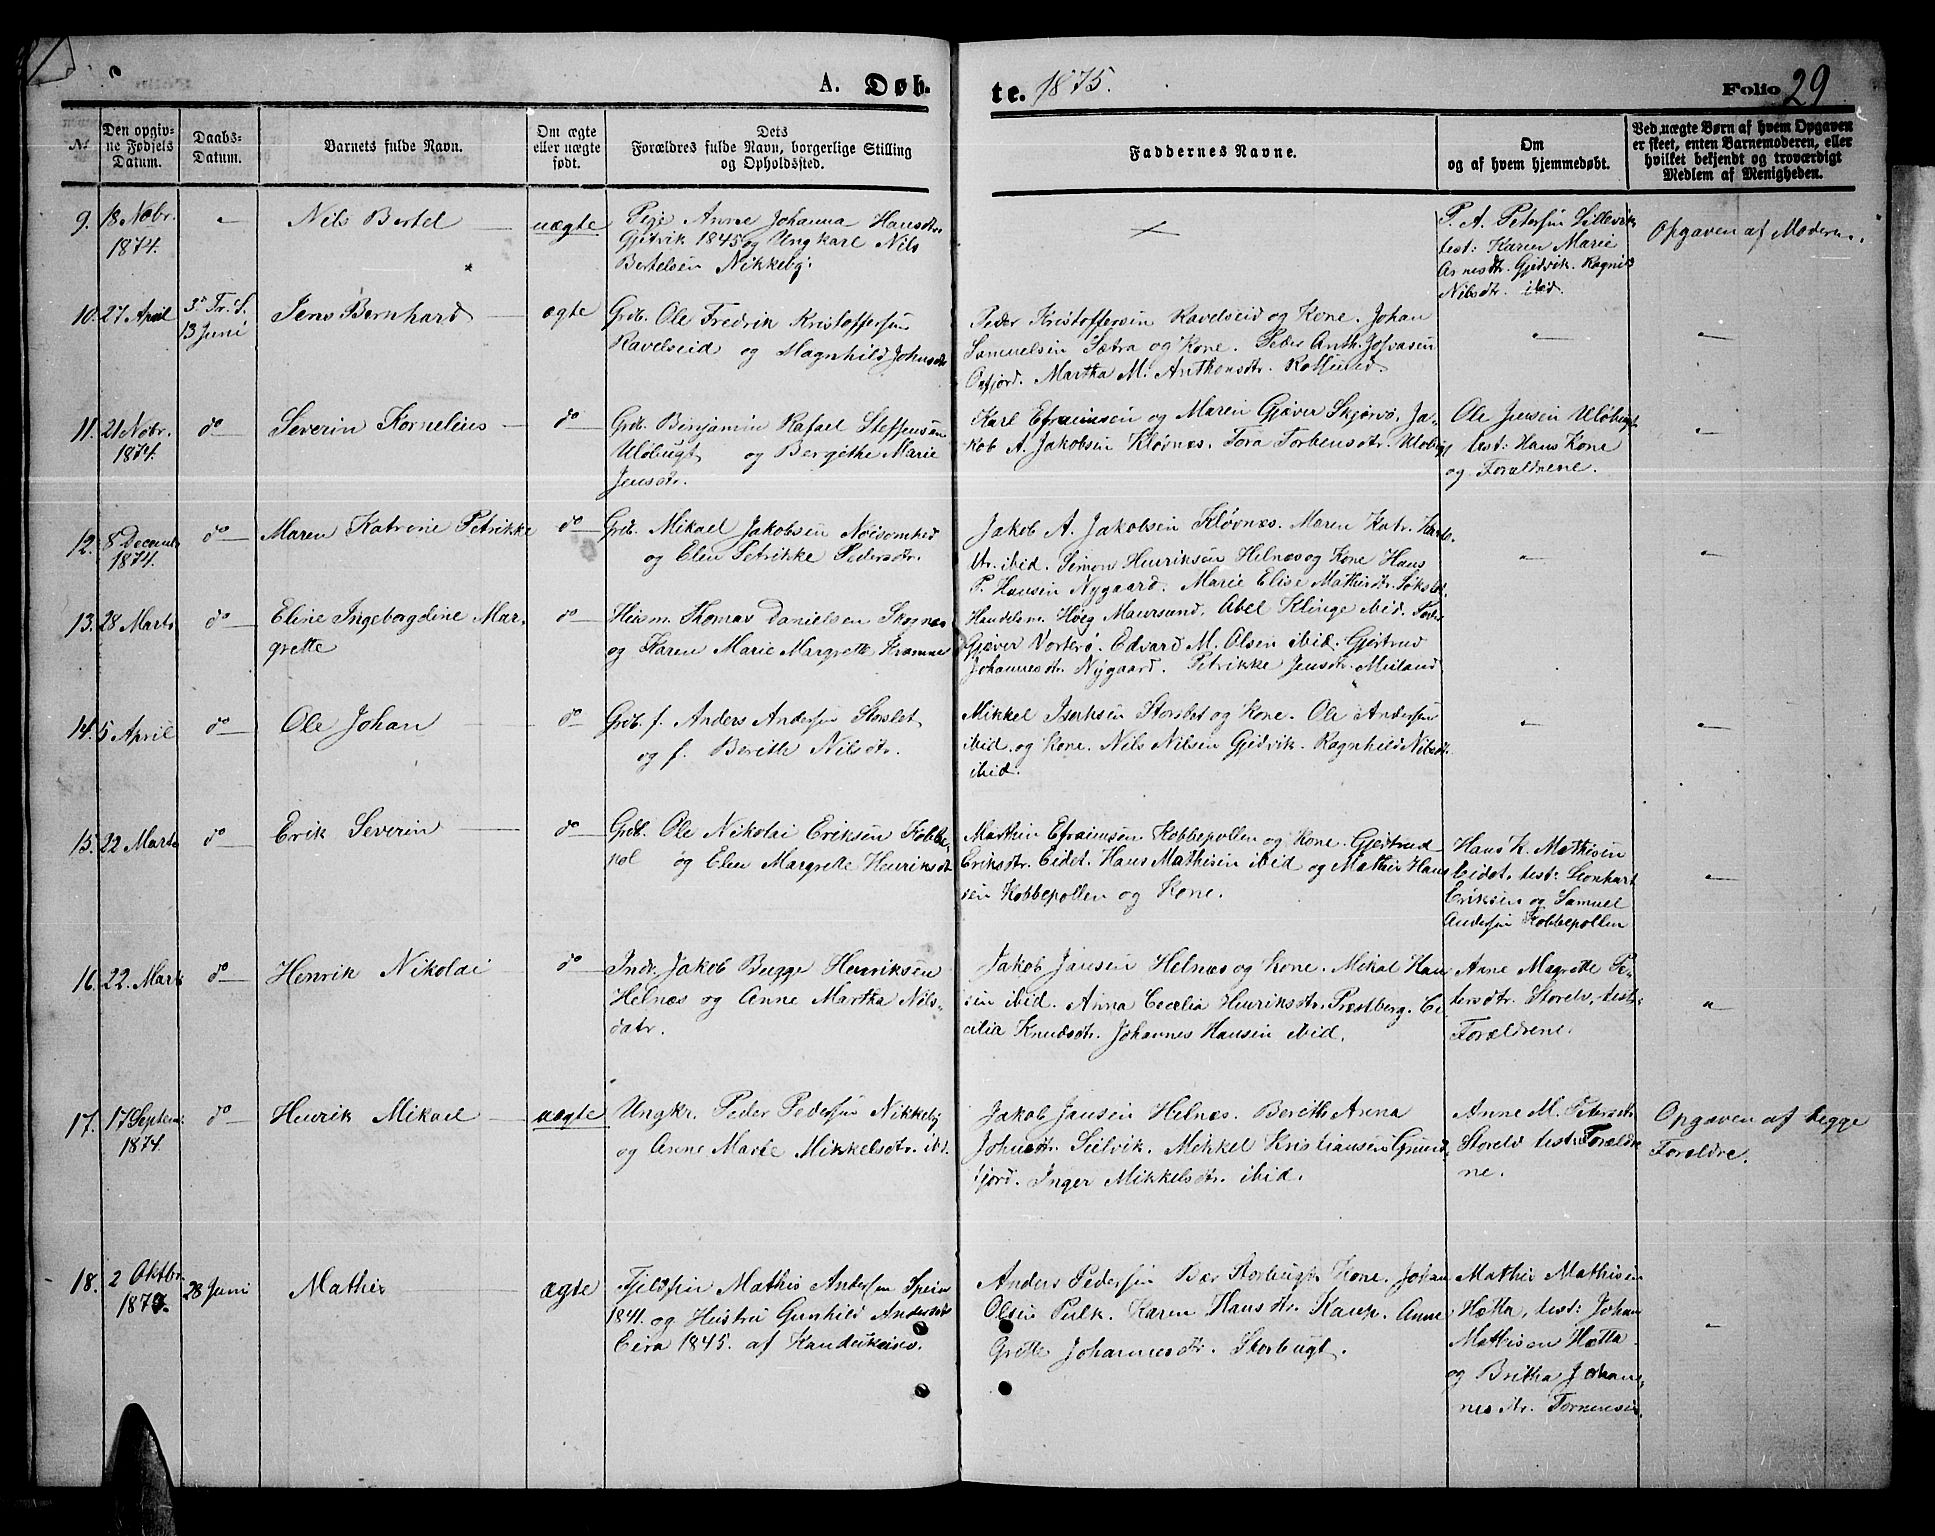 A. Døb-
te. 1875.
Folio 29
№
Den opgiv-
ne Fødsels
Datum.
Daabs-
Datum.
Barnets fulde Navn.
Om ægte
eller uægte
født.
Dets
Forældres fulde Navn, borgerlige Stilling
og Opholdssted.
Faddernes Navne.
Om
og af hvem hjemmedøbt.
Ved uægte Børn af hvem Opgaven
er skeet, enten Barnemoderen, eller
hvilket bekjendt og troværdigt
Medlem af Menigheden.
9. 18 Nobr.
1874.
"
Nils Bertel
uægte
Pige Anne Johanna Hansdtr
Gjetvik 1845 og Ungkarl Nils
Bertelsen Nikkeby.
P. A. Petersen
test: Karen Marie
Arnesdtr. Gjedvik. Ragnild
Nilsdtr. ibid.
Opgaven af Moderen.
10. 27 April
3 S. Tr.
13 Juni
Jens Bernhard
ægte
Grdb. Ole Fredrik Kristoffersen
Ravelseid og Magnhild Johnsdtr
Peder Kristoffersen Ravelseid og Kone. Johan
Samuelsen Sætra og Kone. Peder Anth.
Oxfjord. Martha M. Anthonsdtr. Rotsund.
"
"
11. 21 Nobr.
1874.
do
Severin Kornelius
do
Grdb. Benjamin Rafael Steffensen
Uløbugt og Bergithe Marie
Jensdtr.
Karl Efraimsen og Maren Gjæver Skjervø. Ja-
kob A. Jakobsen Kløvnes. Tora Torbensdtr. Uløbugt
Ole Jensen Uløbugt
test: Hans Kone
og Forældrene.
"
12. 8 Decemb.
1874.
do
Maren Katrine Petrikke
do
Grdb. Mikael Jakobsen Nøisomhed
og Elen Petrikke Pedersdtr.
Jakob A. Jakobsen Kløvnes. Maren Katr. Karls-
dtr. ibid. Simon Henriksen Helnes og Kone Hans
P. Hansen Nygaard. Marie Elise Mathisdtr.
"
"
13. 28 Marts
do
Eline Ingeborgdine Mar-
grette
do
Huusm. Thomas Danielsen Skognes
og Karen Marie Margrette
Handelsm. Høeg Maursund. Abel Klinge ibid.
Gjæver Vorterø. Edvard M. Olsen ibid. Gjertrud
Johannesdtr. Nygaard. Petrikke Jensdtr. Meiland
14. 5 April
do
Ole Johan
do
Grdb. f. Anders Andersen Storslet
og f. Berith Nilsdtr.
Mikkel Isaksen Storslet og Kone. Ole Andersen
ibid. og Kone. Nils Nilsen Gjedvik. Ragnhild Nilsdtr.
ibid.
"
"
15. 22 Marts
do
Erik Severin
do
Grdb. Ole Nikolai Eriksen Kobbe-
pol og Elen Margrete Henriksdtr
Mathis Efraimsen Kobbepollen og Kone. Gjertrud
Eriksdtr. Eidet. Hans Mathisen ibid og Mathis Han-
sen Kobbepollen og Kone.
Hans K. Mathisen
Eidet, test: Leonhart
Eriksen og Samuel
Andersen Kobbepollen
"
16. 22. Marts
do
Henrik Nikolai
do
Indr. Jakob Bugge Henriksen
Helnæs og Anne Martha Nils-
datr.
Jakob Jansen Helnæs og Kone. Mikal Han-
sen ibid. Anna Cecelia Henriksdtr. Præstberg. Ce-
cilia Knudsdtr. Johannes Hansen ibid.
Anne Magrette Pe-
tersdtr. Storelv, test:
Forældrene.
"
17. 17 Septem.
1874.
do
Henrik Mikael
uægte
Ungkr. Peder Pedersen Nikkeby
og Anne Marie Mikkelsdtr. ibd.
Jakob Jansen Helnæs. Berith Anna
Johnsdtr. Selvik. Mikkel Kristiansen Grund-
fjord. Inger Mikkelsdtr. ibid.
Anne M. Petersdtr
Storelv test: Forældre
ne.
Opgaven af begge
Forældre.
18. 2 Oktbr.
28 Juni
Mathis
ægte
Fjeldfin Mathis Andersen Spein
1841. og Hustru Gunhild Andersdtr
Eira 1845. af Kautokeino.
Anders Pedersen Bær Storbugt. Kone. Johan
Olsen Pulk. Karen Hansdtr. Kaup. Anne
Grette Johannesdtr. Storbugt.
Mathis Mathisen
Hætta, test: Johan
Mathisen Hætta
og Britha Johan-
nesdtr.
"